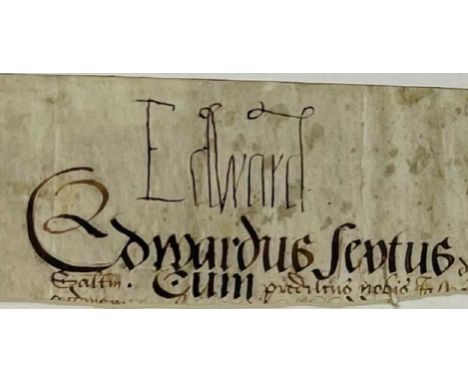 Edward
Edwardus sextus
Saltm. Cum predictus nobis